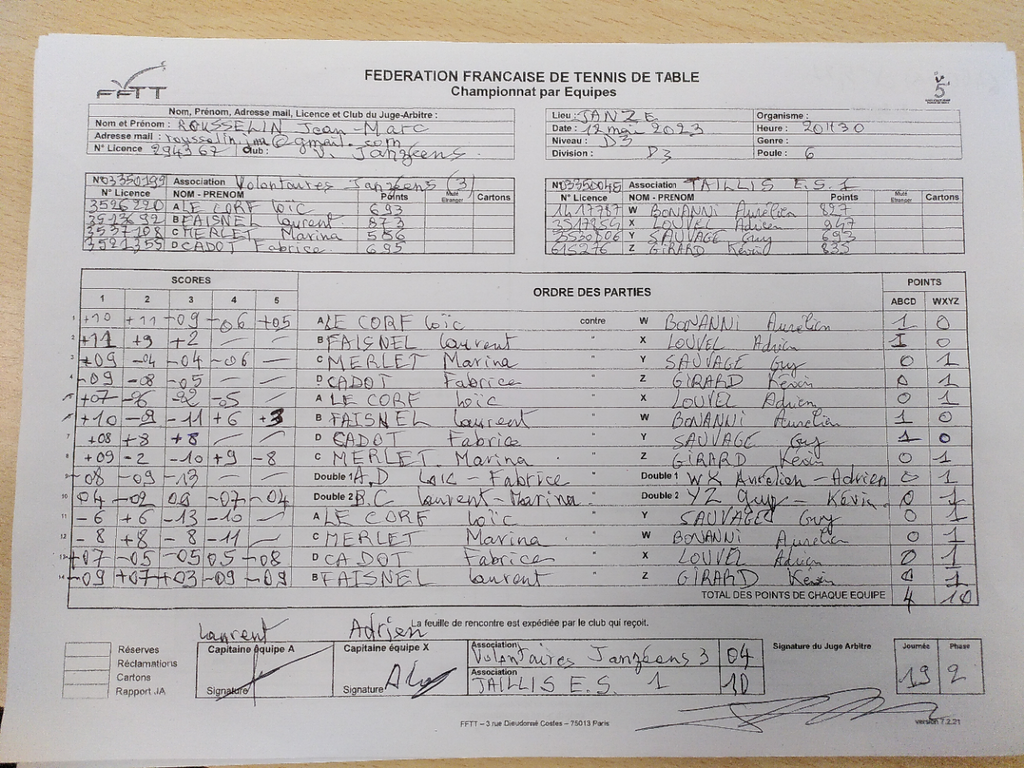 FEDERATION FRANCAISE DE TENNIS DE TABLE
FFTT Championnat par Equipes
Nom, Prénom, Adresse mail, Licence et Club du Juge-Arbitre :
Nom et Prénom : ROUSSELIN Jean-Marc
Adresse mail : @gmail.com
N° Licence Club : Janzéens
Lieu : JANZE Organisme :
Date : 12 mai 2023 Heure : 20H30
Niveau : D3 Genre :
Division : D3 Poule : 6
N°03350199 Association Volontaires Janzéens (3)
N° Licence NOM - PRENOM Points Muté Etranger Cartons
3526220 A LE CORF Loïc 693
3513692 B FAISNEL Laurent 873
3537108 C MERLET Marina 586
3521355 D CADOT Fabrice 695
N°03350045 Association TAILLIS E.S. 1
N° Licence NOM - PRENOM Points Muté Etranger Cartons
W BONANNI Aurélien 827
X LOUVEL Adrien 847
Y SAUVAGE Guy 693
615276 Z GIRARD Kévin 835
SCORES ORDRE DES PARTIES POINTS
1 2 3 4 5 ABCD WXYZ
1 +10 +11 -09 -06 +05 A LE CORF Loïc contre W BONANNI Aurélien 1 0
2 +11 +9 +2 — — B FAISNEL Laurent " X LOUVEL Adrien 1 0
3 +09 -04 -04 -06 — C MERLET Marina " Y SAUVAGE Guy 0 1
4 -09 -08 -05 — — D CADOT Fabrice " Z GIRARD Kévin 0 1
5 +07 -05 — A LE CORF Loïc " X LOUVEL Adrien 0 1
6 +10 -9 -11 +6 +3 B FAISNEL Laurent " W BONANNI Aurélien 1 0
7 +08 +8 +8 — — D CADOT Fabrice " Y SAUVAGE Guy 1 0
8 +09 -2 -10 +9 -8 C MERLET Marina " Z GIRARD Kévin 0 1
9 -08 -09 -13 — — Double 1 A.D Loïc - Fabrice " Double 1 WX Aurélien - Adrien 0 1
10 04 -02 09 -07 -04 Double 2 B.C Laurent - Marina " Double 2 YZ Guy - Kévin 0 1
11 -6 +6 -13 -10 — A LE CORF Loïc " Y SAUVAGE Guy 0 1
12 -8 +8 -8 -11 — C MERLET Marina " W BONANNI Aurélien 0 1
13 +07 -05 -05 05 -08 D CADOT Fabrice " X LOUVEL Adrien 0 1
14 -09 +07 +03 -09 -09 B FAISNEL Laurent " Z GIRARD Kévin 0 1
TOTAL DES POINTS DE CHAQUE EQUIPE 4 10
La feuille de rencontre est expédiée par le club qui reçoit.
Laurent Adrien
Réserves
Réclamations
Cartons
Rapport JA
Capitaine équipe A
Signature
Capitaine équipe X
Signature
Association Volontaires Janzéens 3 04
Association TAILLIS E.S. 1 10
Signature du Juge Arbitre
Journée Phase
2
FFTT – 3 rue Dieudonné Costes – 75013 Paris
version 7.2.21